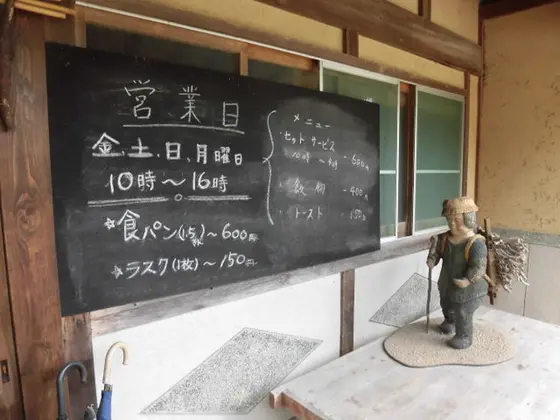 営業日
金、土、日、月曜日
10時～16時
☆食パン(1.5斤)～600円
☆ラスク(1枚)～150円
メニュー
・セットサービス
10時～ - 600円
・飲物 - 400円
・トースト - 150円